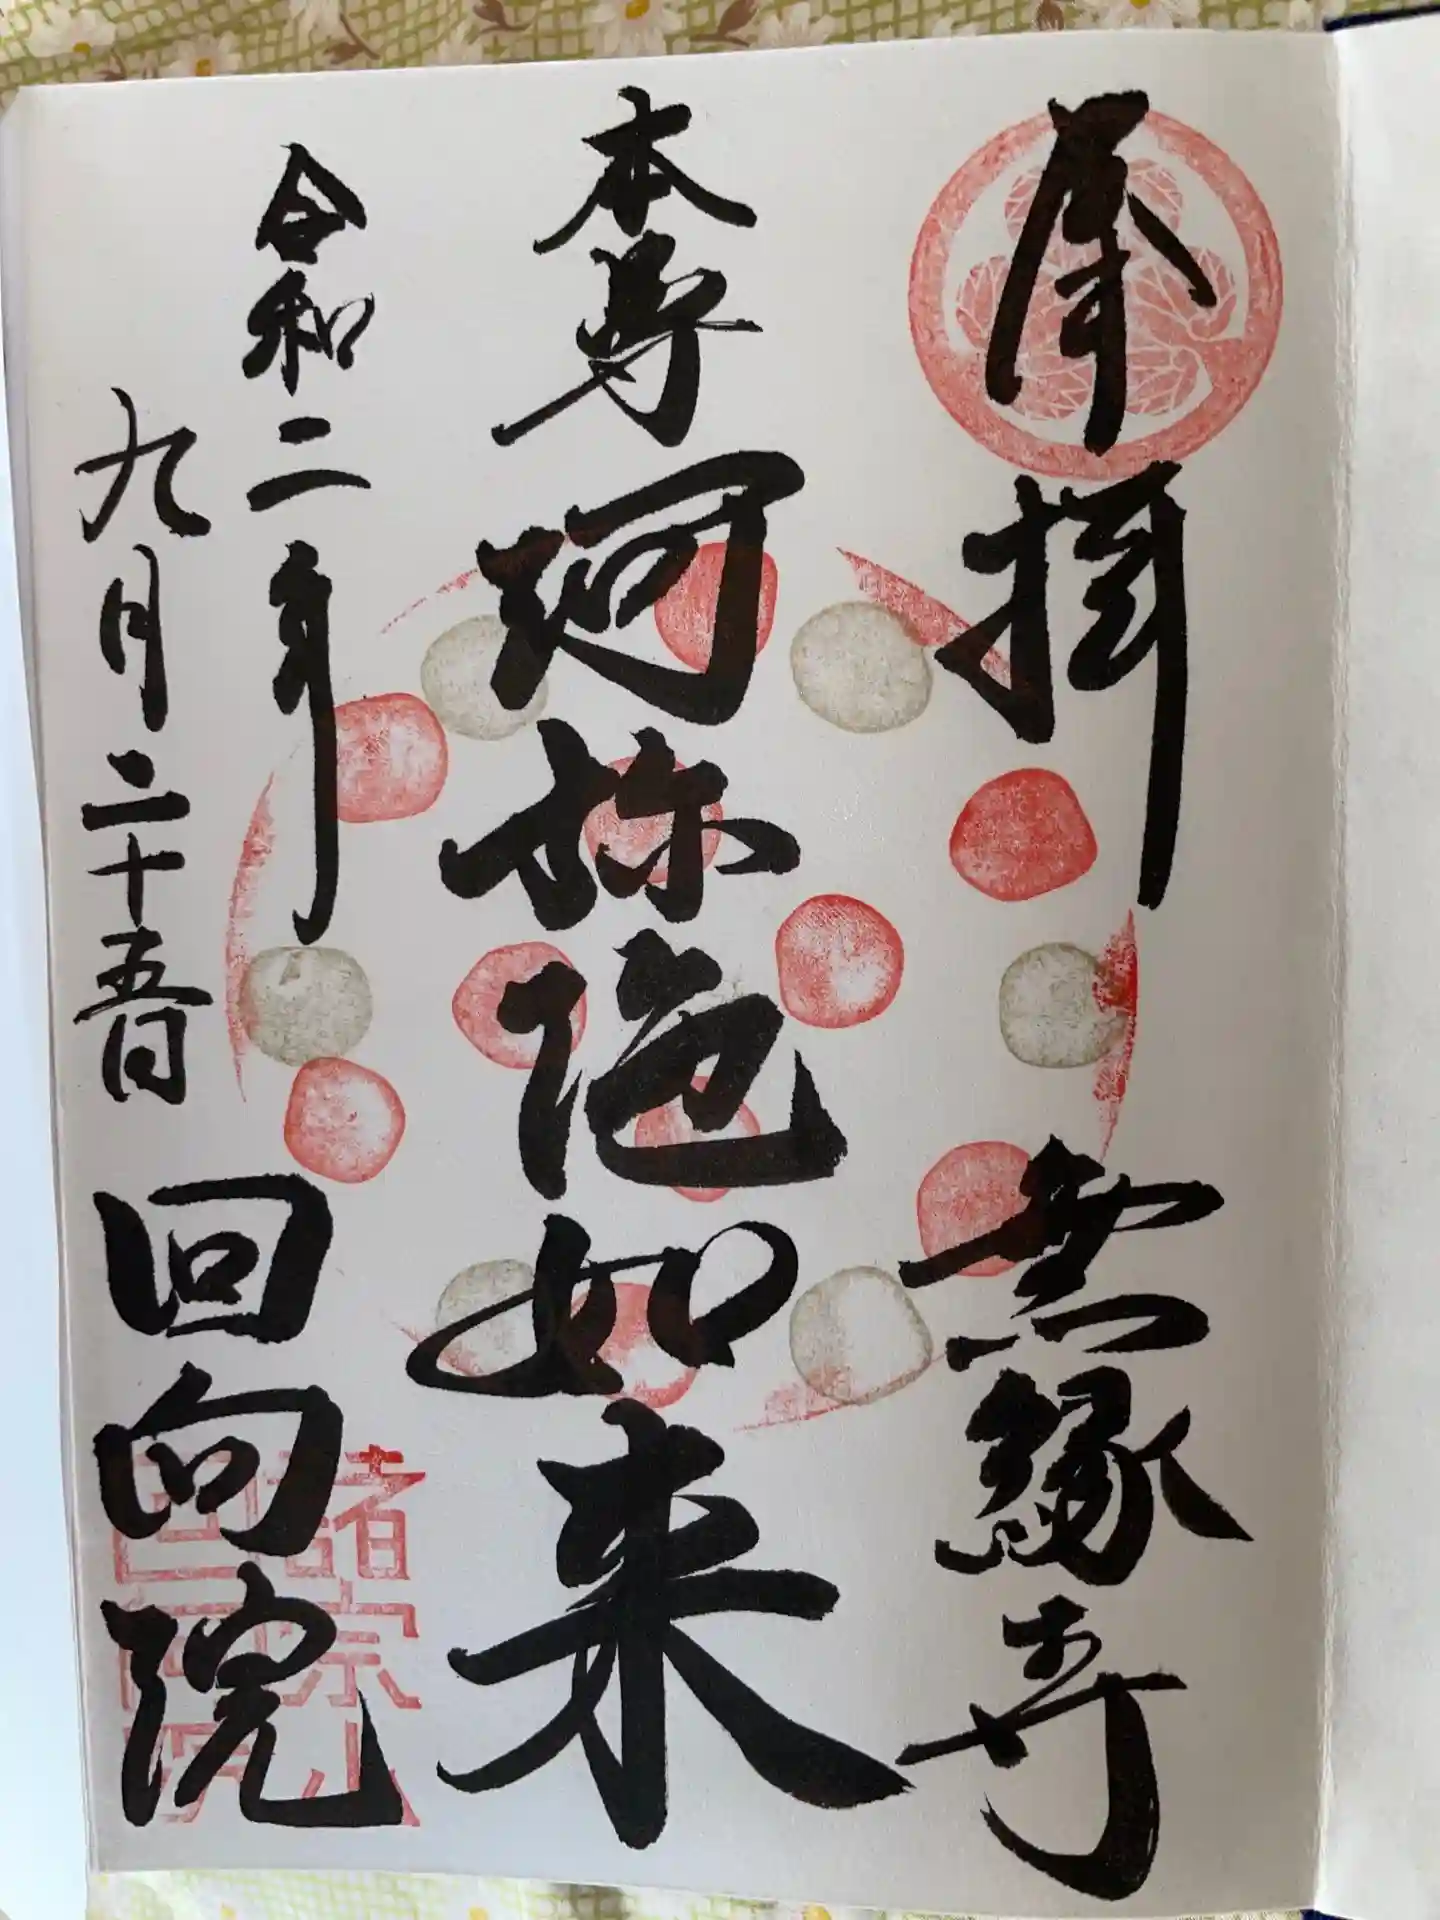 奉拝　無縁寺
本尊　阿弥陀如来
令和二年
九月二十五日
回向院
諸宗山
回向院